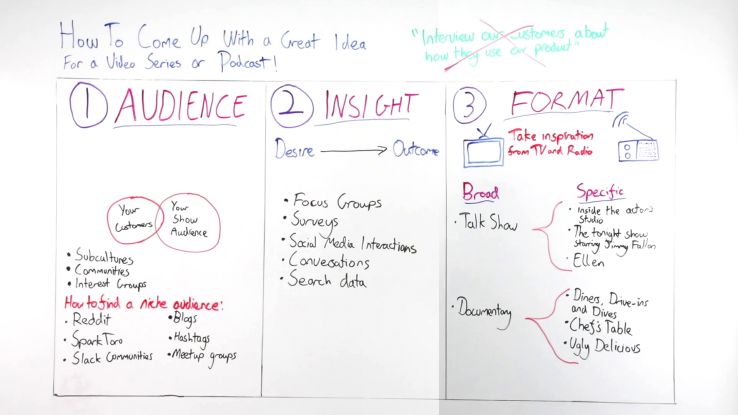 How To Come Up With a Great Idea
For a Video Series or Podcast!
"Interview our customers about
how they use our product"
1 AUDIENCE
Your
Customers
Your
Show
Audience
• Subcultures
• Communities
• Interest Groups
How to find a niche audience:
• Reddit
• SparkToro
• Slack Communities
• Blogs
• Hashtags
• Meetup groups
2 INSIGHT
Desire → Outcome
• Focus Groups
• Surveys
• Social Media Interactions
• Conversations
• Search data
3 FORMAT
Take inspiration
from TV and Radio
Broad
• Talk Show
Specific
• Inside the actor's
Studio
• The tonight show
starring Jimmy Fallon
• Ellen
• Documentary
• Diners, Drive-ins
and Dives
• Chef's Table
• Ugly Delicious